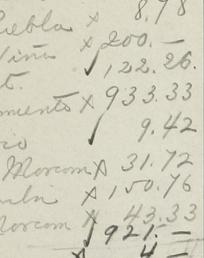 uebla x 8.78
Viña x 200.—
t. √ 122.26.
amento x 933.33
cio √ 9.42
Morcom x 31.72
x 150.76
Morcom x 43.33
√ 921.—
x 4 —